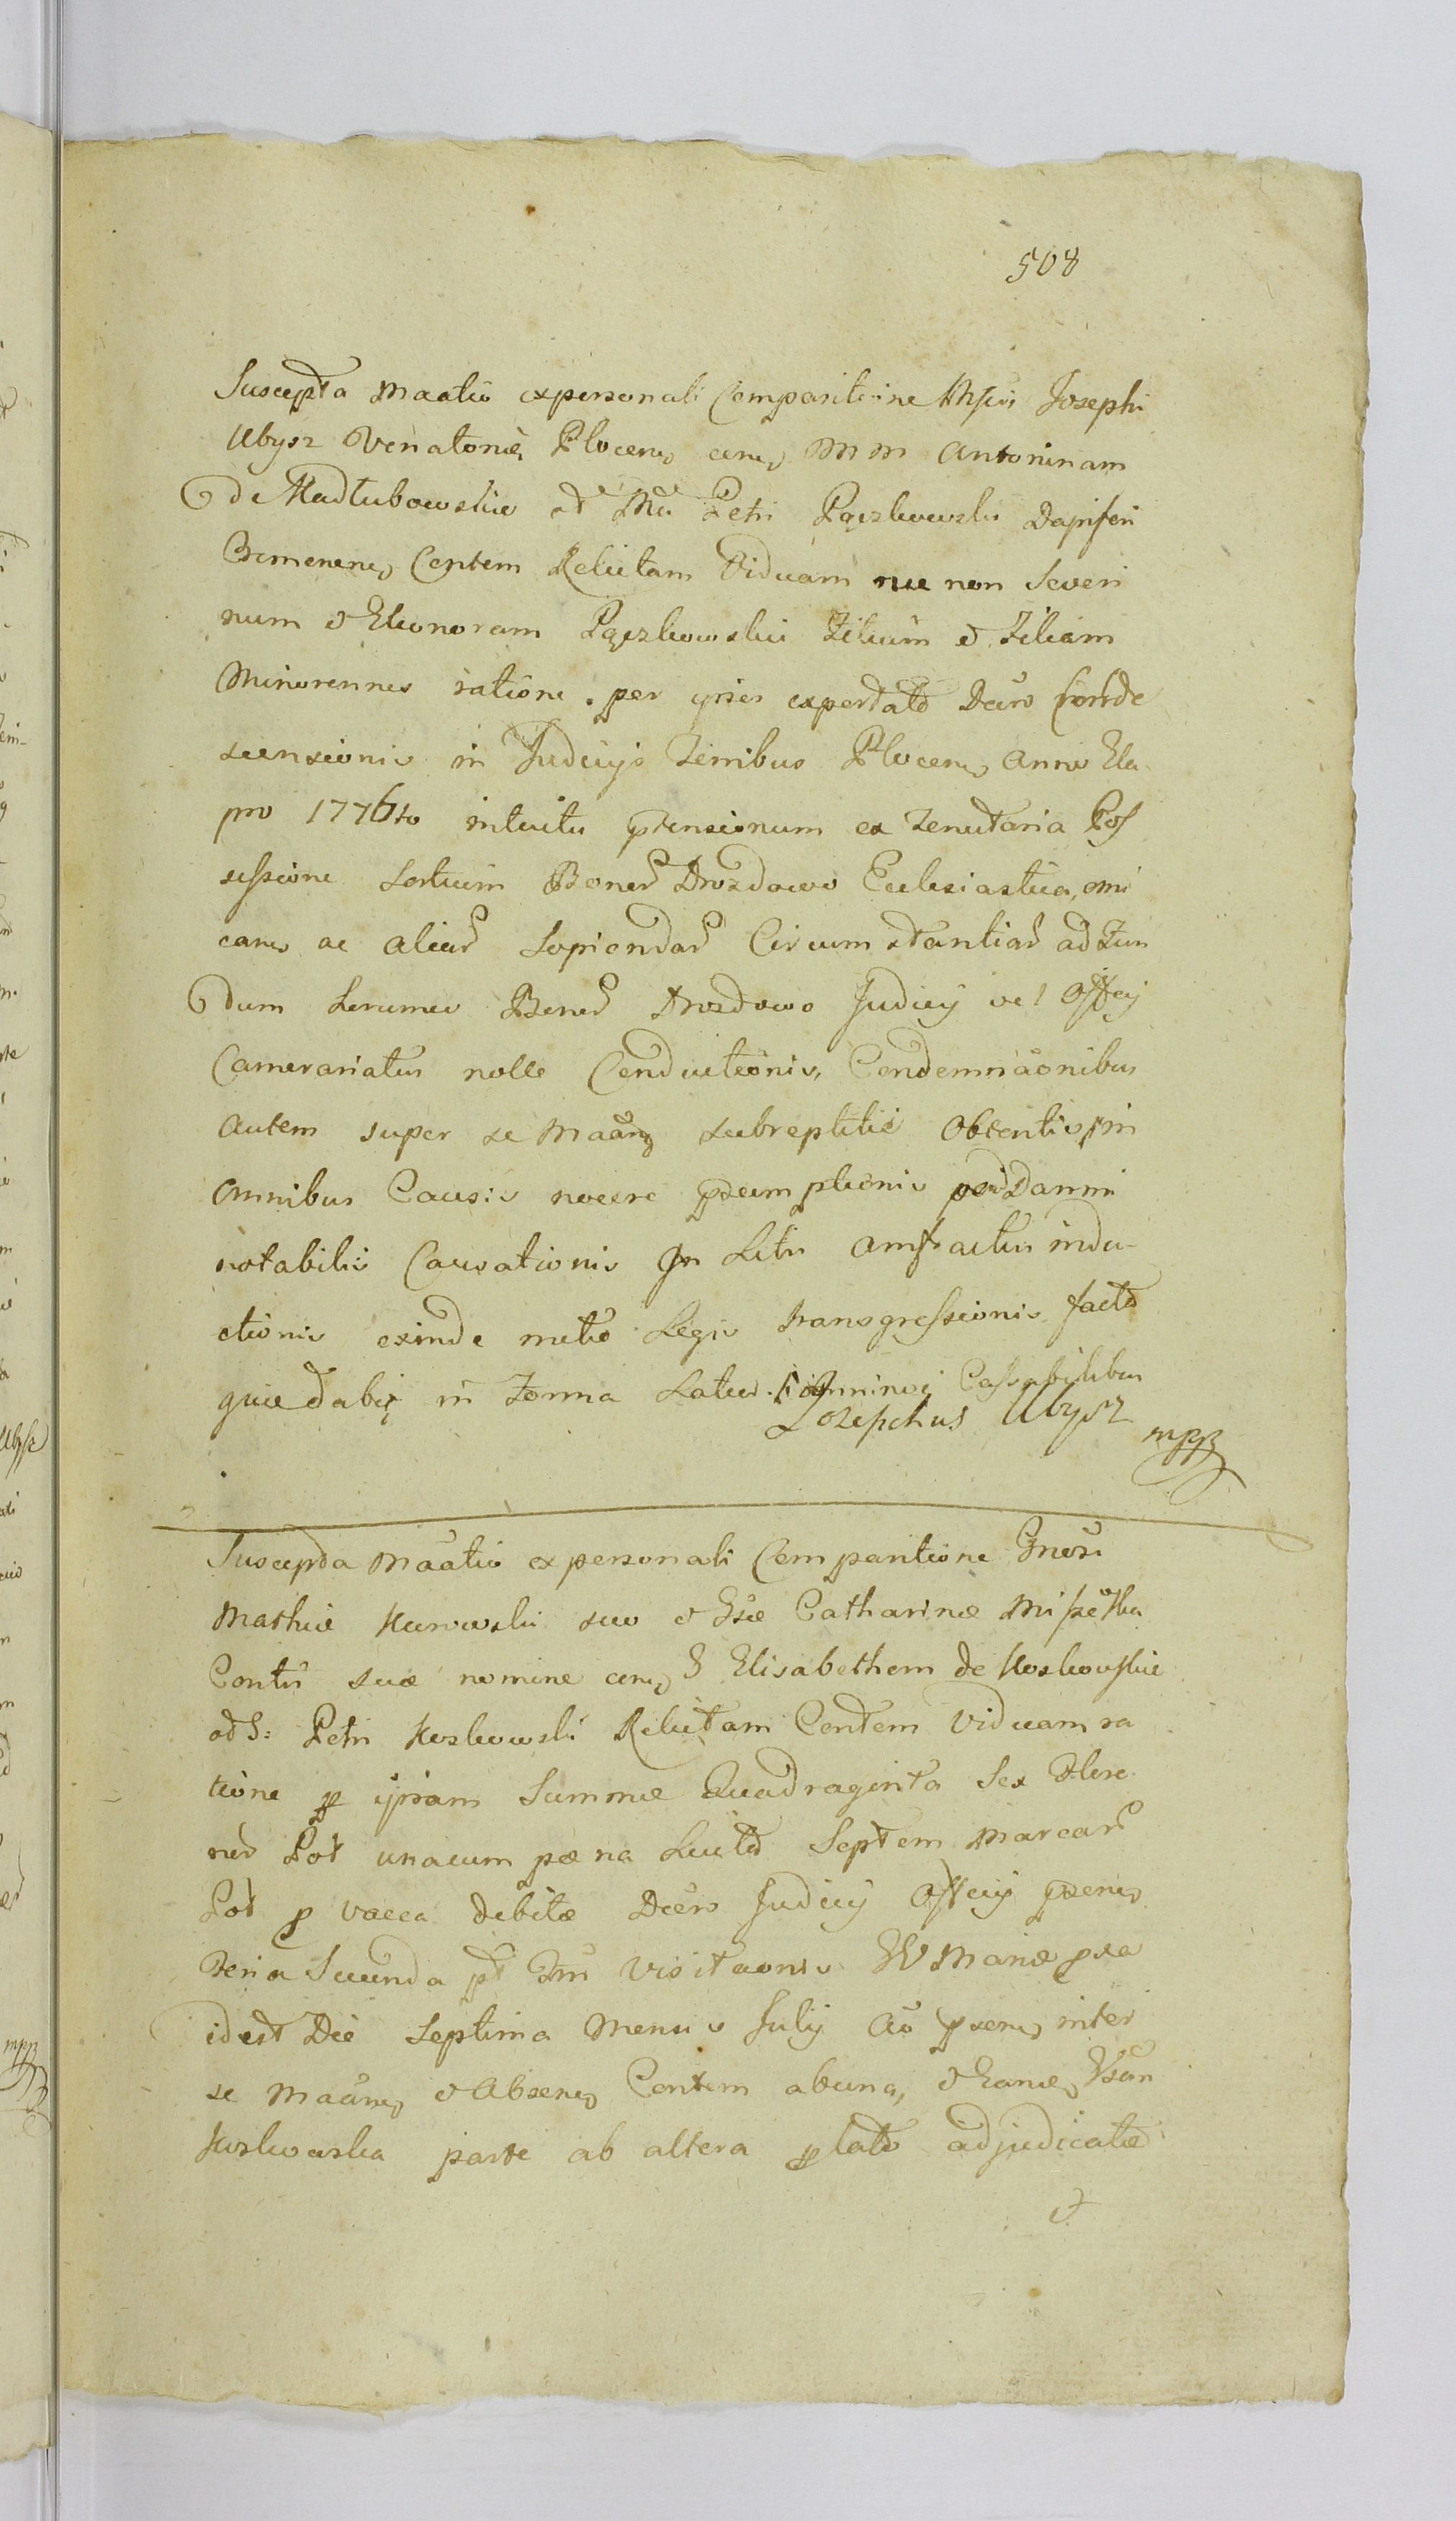 508
Suscepta Maatio ex personali Comparitione Mfici Josephi
Ubysz Venatoris Plocens cons MM Antoninam
de Nadłubowskie et Mci Petri Pączkowski Dapiferi
Ciems Coptem Relictam Viduam nec non Severi
num et Eleonoram Pączkowskie Filium et Filiam
Minorennes ratione per ipsos exportato Decro Conde
scensionis in Judicijs Terribus Plocens Anno Ela
pso 1776to intuitu ptensionum ex Tenutaria Pos
sessione Sortium Bonor Drozdowo Ecclesiastica,
eans ac aliar Sopiendar Circumstantiar ad Fun
dum Bonor Drozdowo Judicij vel Officij
Camerariatus nolle Conductionis, Condemnaonibus
autem super se Maans subreptitie obtentis in
omnibus Causis nocere psumptionis Damni
notabilis Causationis In Litis amfractus indu-
ctionis exinde metus Legis transgressionis facto
que in Forma Latior. Cassabilibus
Jozephus Ubysz mpp
Suscepta Maatio ex personali Comparitione Gnosi
Mathiæ Kurowski suo et Gsæ Catharinæ
Contis suæ nomine cons G Elisabetham de Koskowskie
et G: Petri Koskowski Relictam Contem Viduam ra
tione p ipsam Summæ Quadraginta Sex Flore
nor Pol unacum pæna Luito Septem Marcar
Pol p vacca debitæ Decro Judicij Officij psens
Feria Secunda pt Ftm Visitaonis BV Mariæ pxa
idest Die Septima Mensis Julij Ao psens inter
se Maans et Absens Contem ab una, et Eans Gsam
Koskowska parte ab altera plato adjudicatæ
et